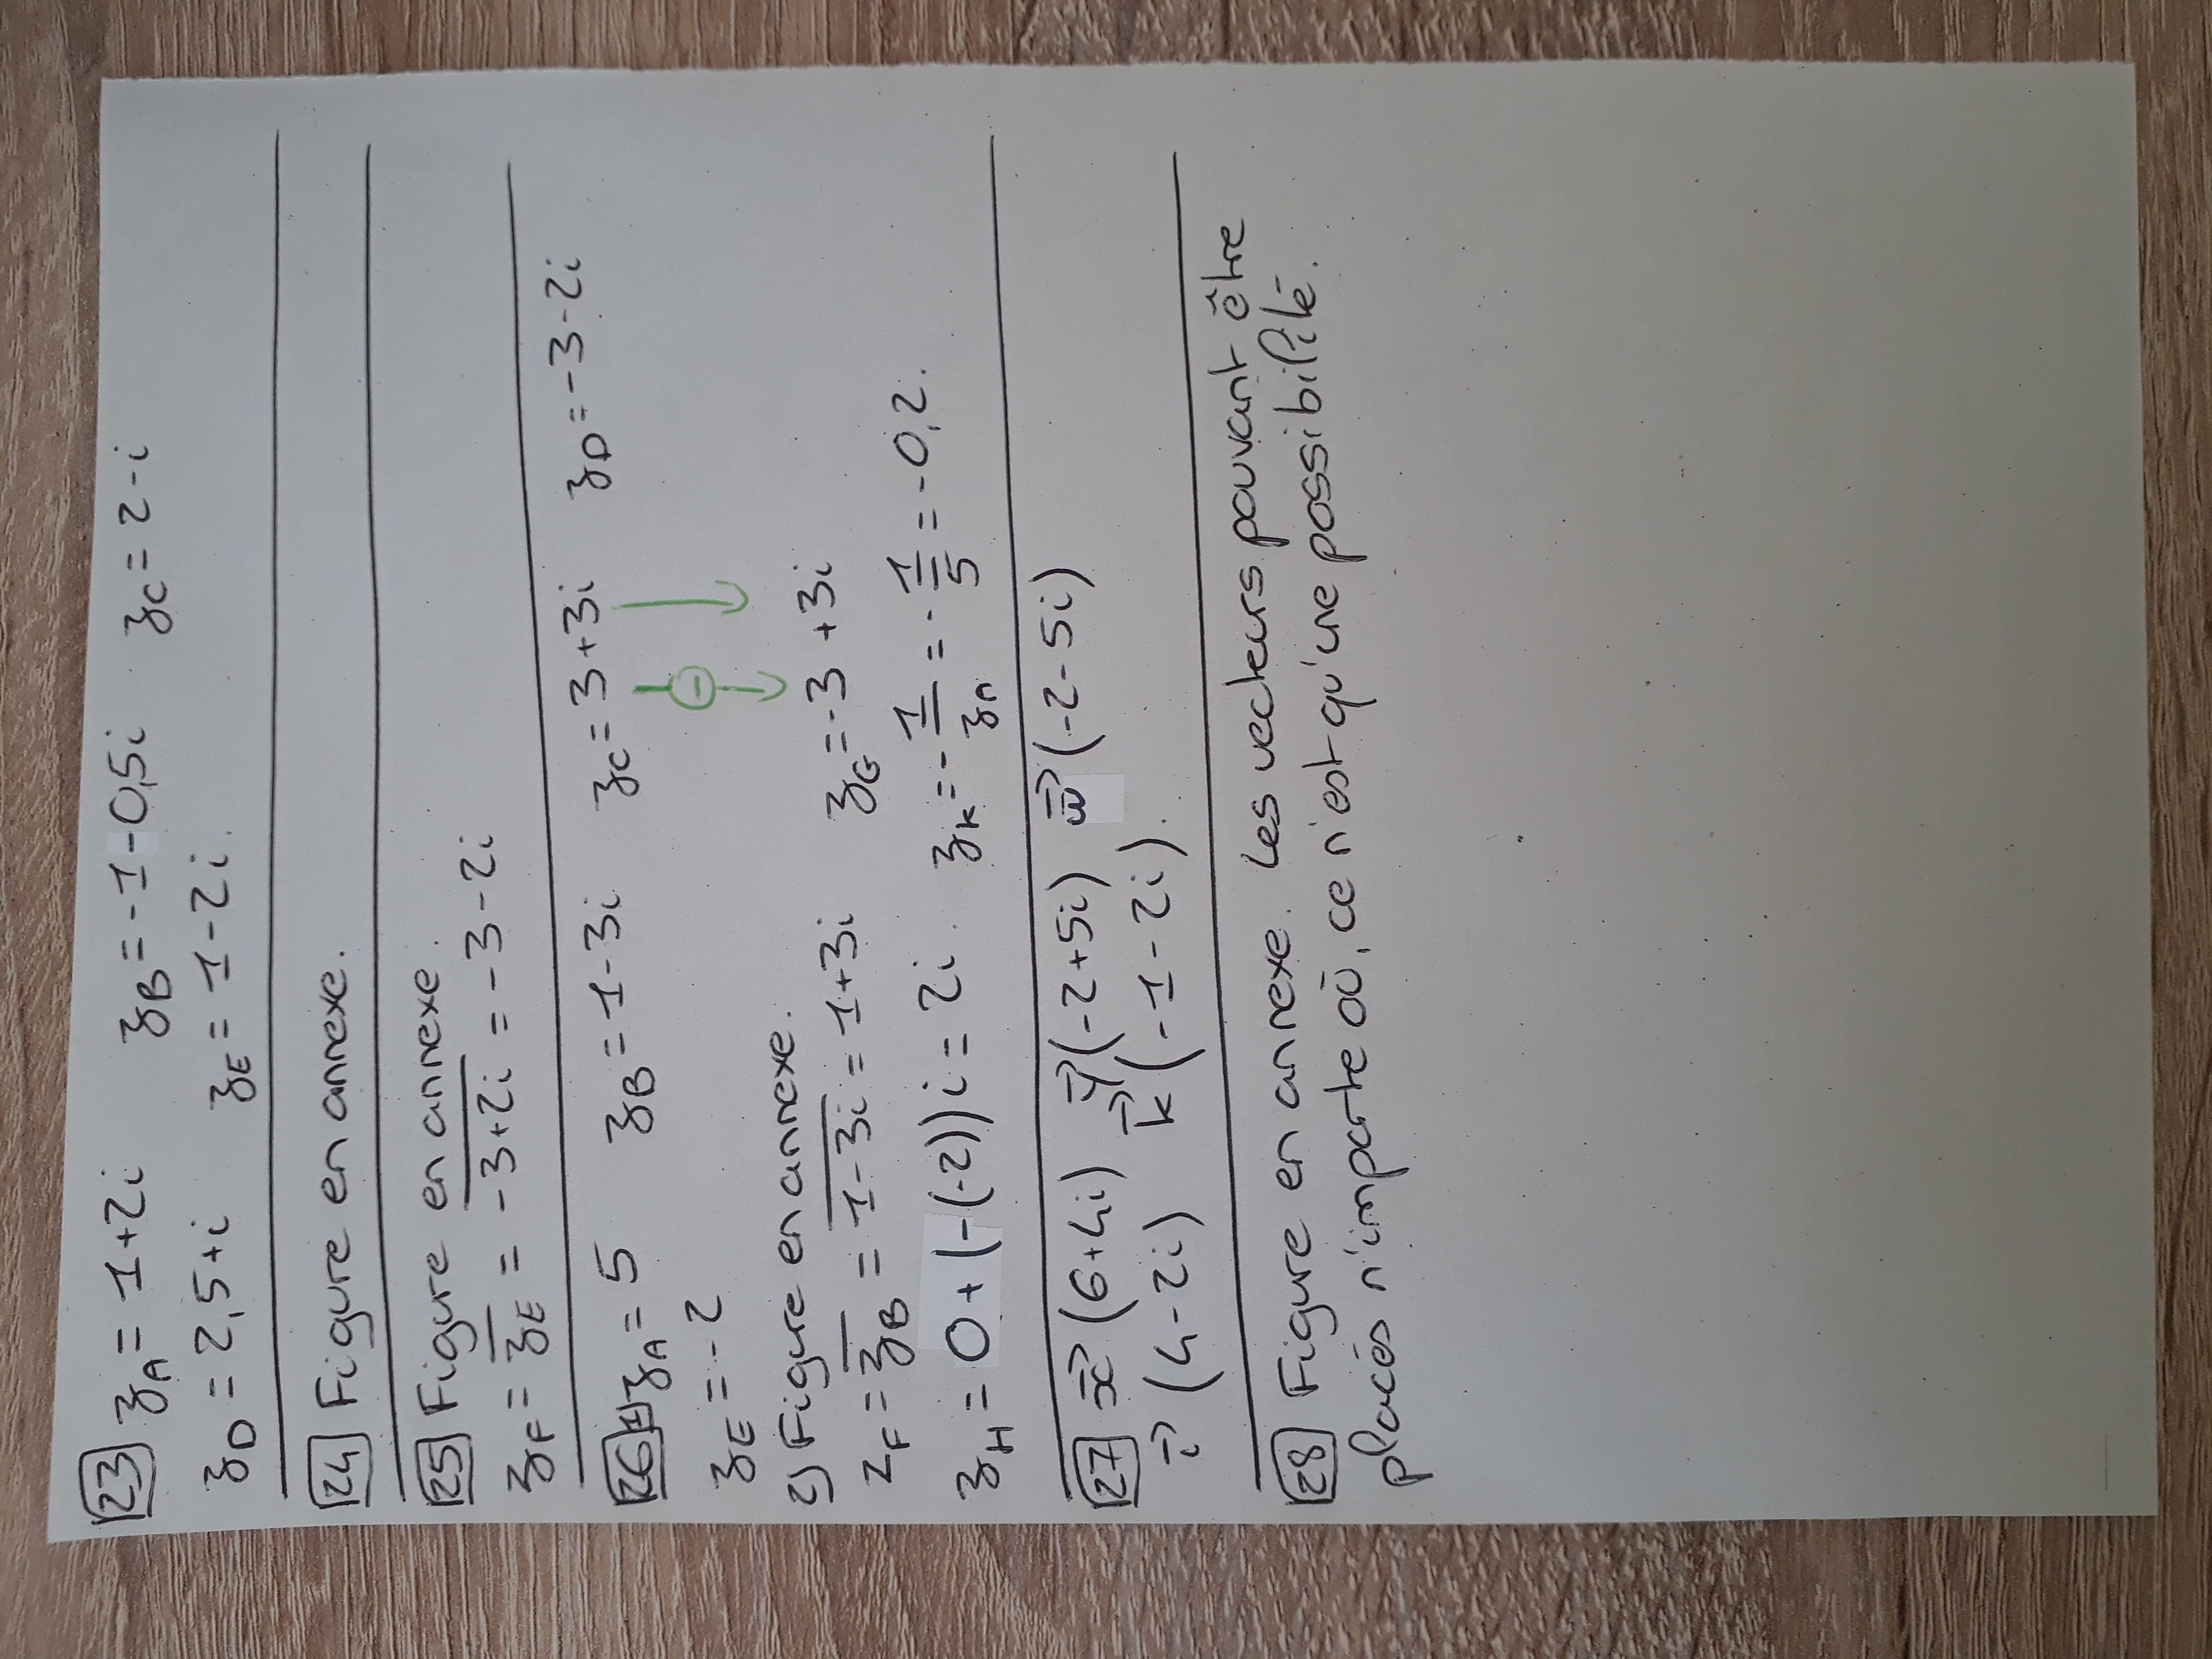 23 zA = 1+2i zB = -1-0,5i zC = 2-i
zD = 2,5+i zE = 1-2i.
24 Figure en annexe.
25 Figure en annexe.
zF = \overline{zE} = \overline{-3+2i} = -3-2i
26 1) zA = 5 zB = 1-3i zC = 3+3i zD = -3-2i
zE = -2
2) Figure en annexe.
zF = \overline{zB} = \overline{1-3i} = 1+3i zG = -3+3i
zH = 0+(-(-2))i = 2i. zK = -1/zA = -1/5 = -0,2.
27 \vec{x} (6+4i) \vec{y} (-2+5i) \vec{w} (-2-5i)
\vec{i} (4-2i) \vec{k} (-1-2i).
28 Figure en annexe. Les vecteurs pouvant être
placés n'importe où, ce n'est qu'une possibilité.